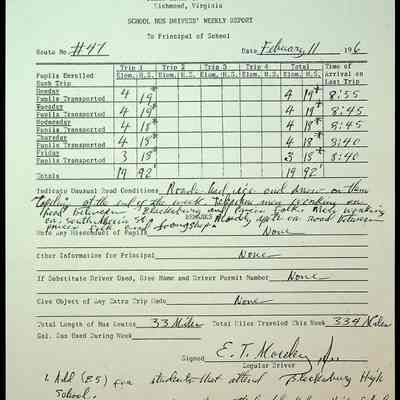 Richmond, Virginia
SCHOOL BUS DRIVERS' WEEKLY REPORT
To Principal of School
Route No. #47 Date February 11 1966
Trip 1 Trip 2 Trip 3 Trip 4 Total Time of
Pupils Enrolled Elem. H.S. Elem. H.S. Elem. H.S. Elem. H.S. Elem. H.S. Arrival on
Each Trip Last Trip
Monday
Pupils Transported 4 19* 4 19* 8:55
Tuesday
Pupils Transported 4 19* 4 19* 8:45
Wednesday
Pupils Transported 4 18* 4 18* 8:45
Thursday
Pupils Transported 4 18* 4 18* 8:40
Friday
Pupils Transported 3 18* 3 18* 8:40
Totals 19 92 19 92
Indicate Unusual Road Conditions Roads had ice and snow on them
of the end of the week. Telephone men working on
between Blacksburg and Prices Fork. Men working
on REMARKS on road between
Prices Fork and
Note Any Misconduct of Pupils None
Other Information for Principal None
If Substitute Driver Used, Give Name and Driver Permit Number None
Give Object of Any Extra Trip Made None
Total Length of Bus Routes 33 Miles Total Miles Traveled This Week 334 Miles
Gal. Gas Used During Week
Signed E. T.
Regular Driver
1. Add (85) for students that attend Blacksburg High
School.